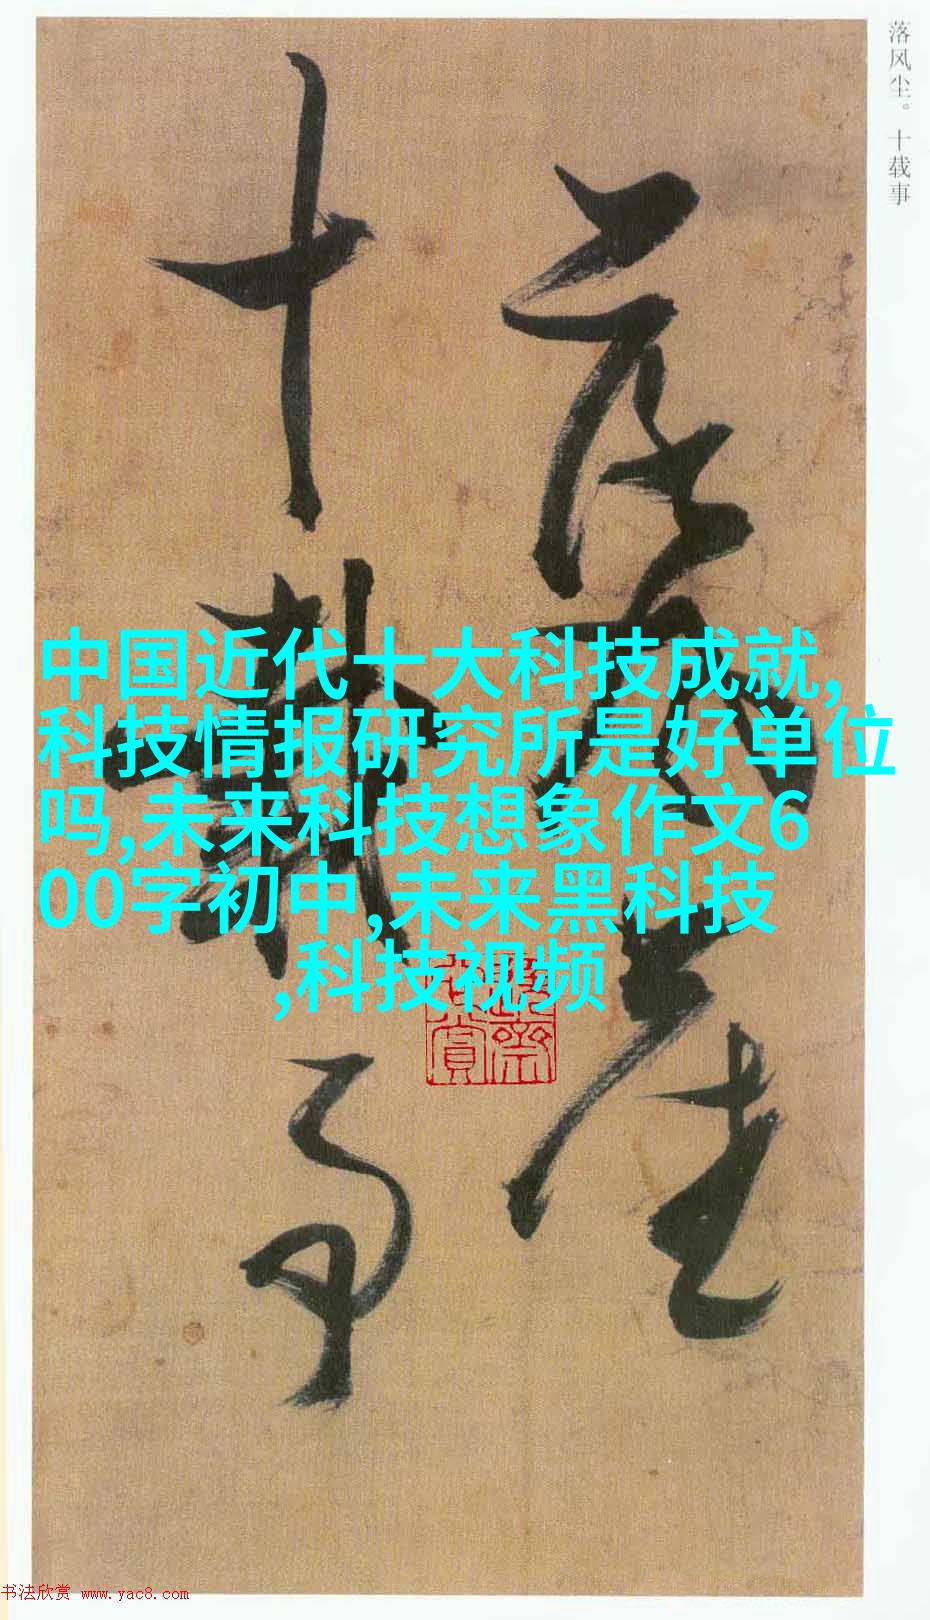 落风尘。十载事
落风尘
十载事
中国近代十大科技成就,
科技情报研究所是好单位
吗,未来科技想象作文6
00字初中,未来黑科技
,科技视频
书法欣赏 www.yac8.com